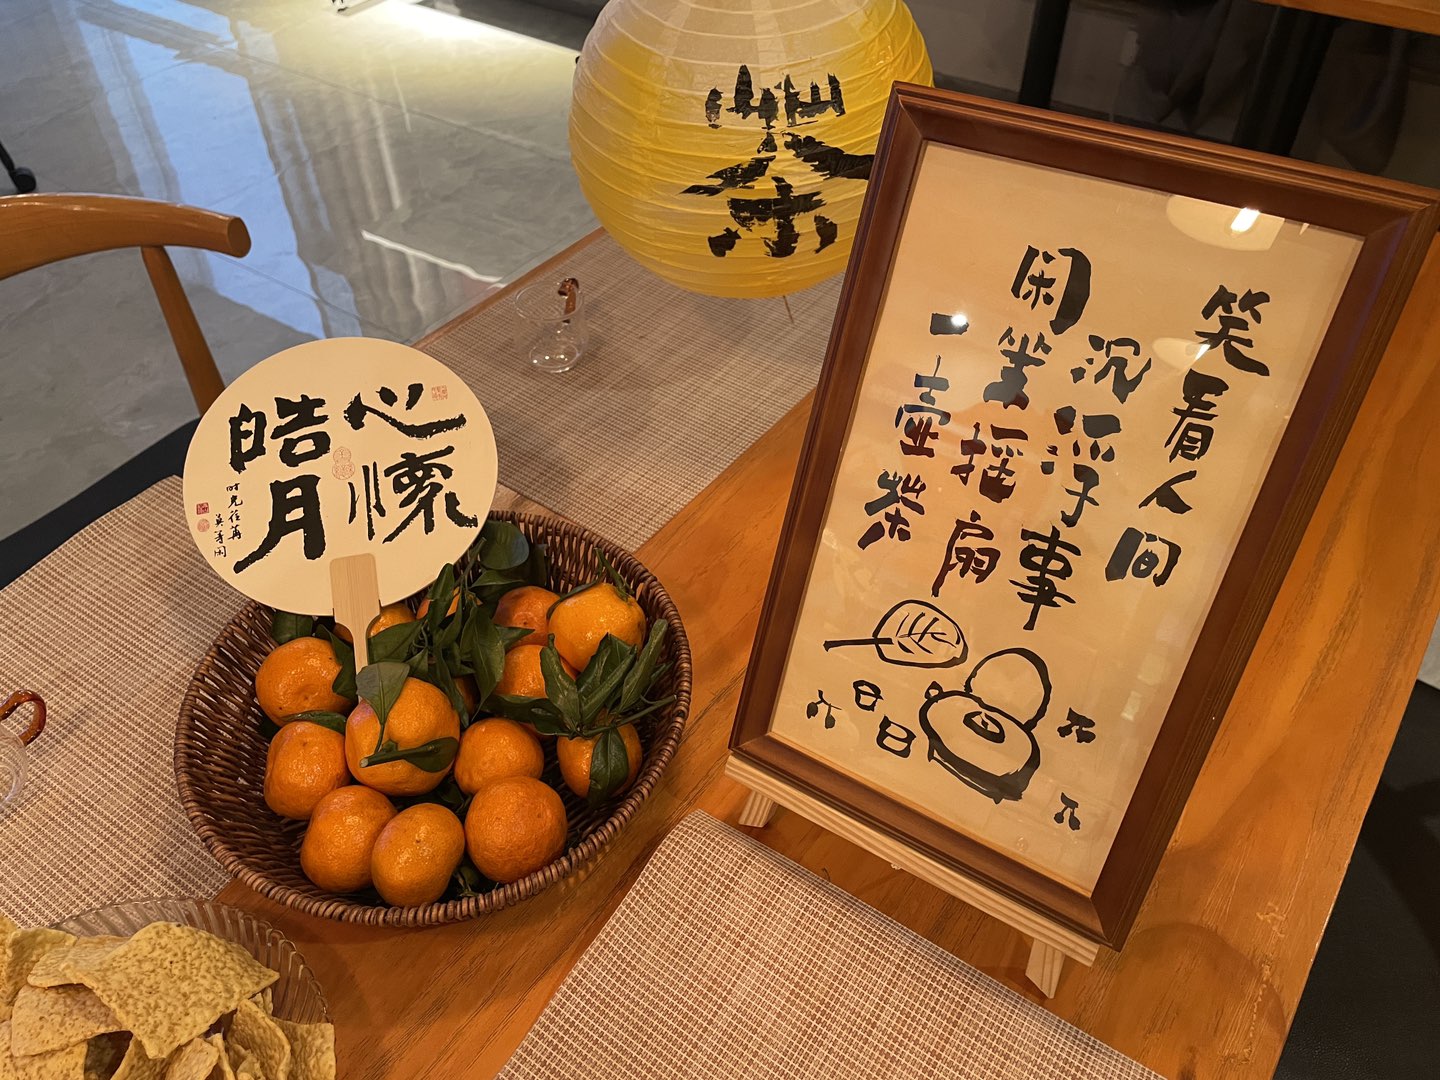 茶
心懷
皓月
时光荏苒
莫等闲
笑看人间
沉浮事
闲坐摇扇
一壶茶